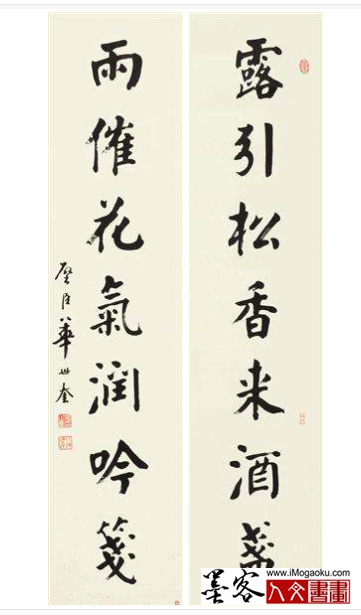 露引松香来酒盞
雨催花氣潤吟箋
璧臣華世奎
墨客
www.iMogaoku.com
人文書畫